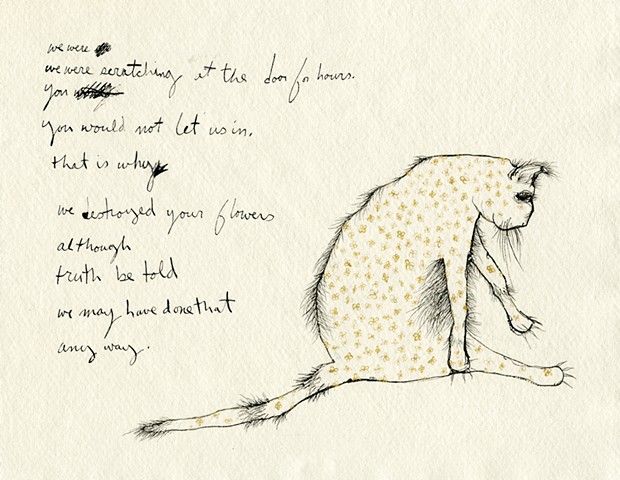 we were
we were scratching at the door for hours.
you
you would not let us in.
that is why
we destroyed your flowers
although
truth be told
we may have done that
any way.